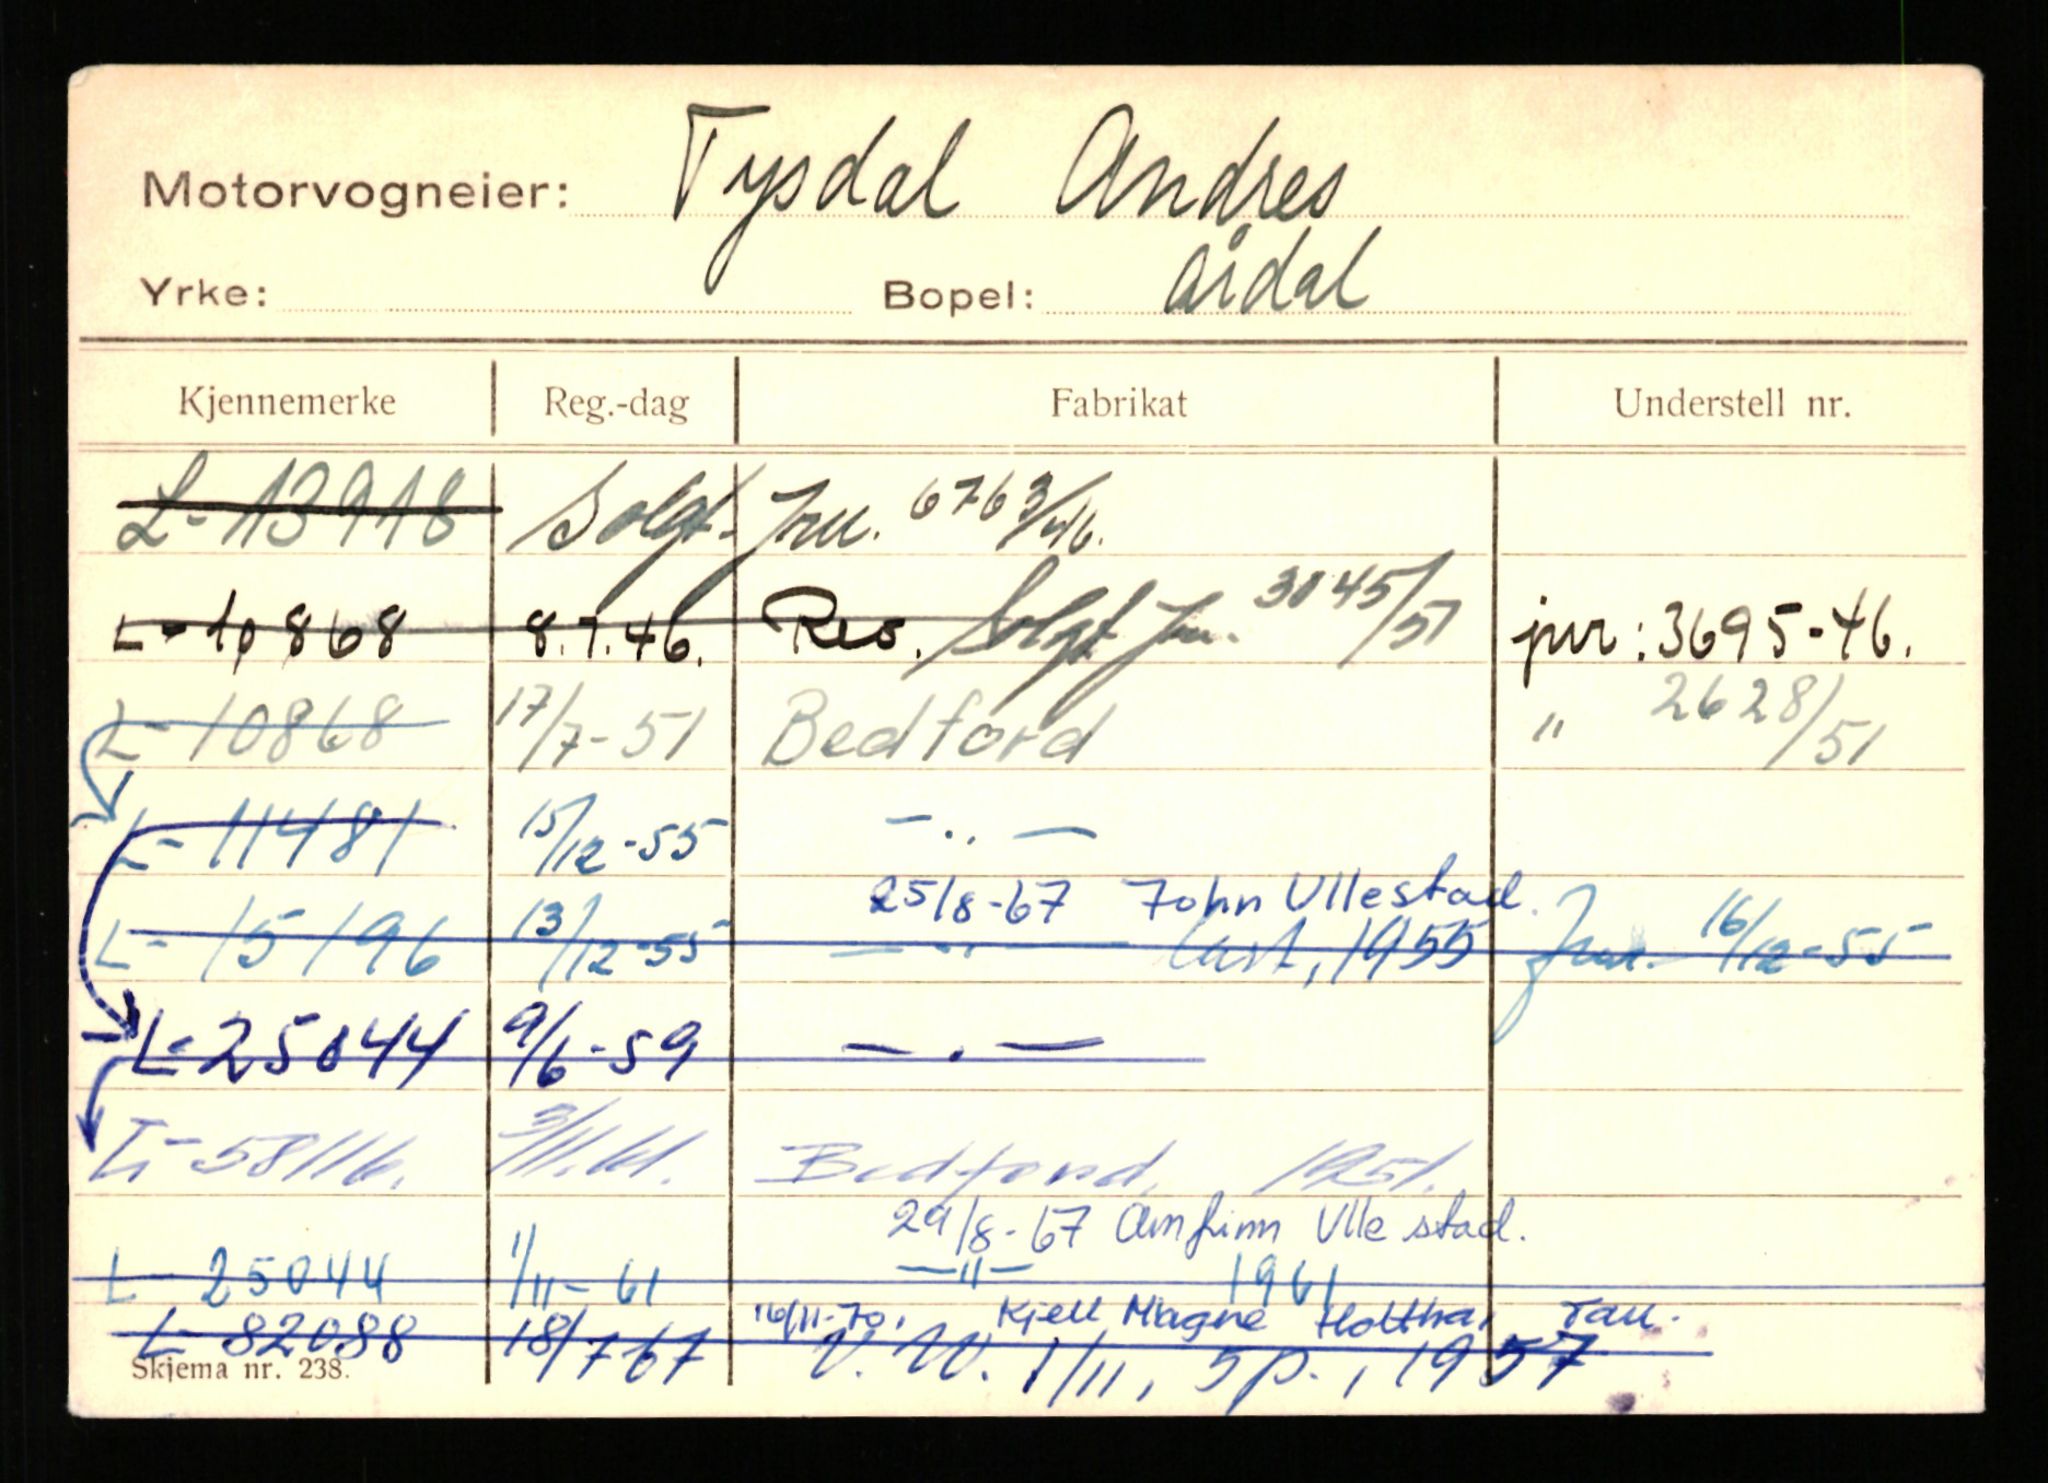 Motorvogneier: Tysdal Andres
Yrke: Bopel: Årdal
Kjennemerke Reg.-dag Fabrikat Understell nr.
L-13918 Solgt. Jnr. 6763/46.
L-10868 8.7.46. Reo. Solgt Jnr. 3045/51 jnr: 3695-46.
L-10868 17/7-51 Bedford " 2628/51
L-11481 15/12-55 — .. —
25/8-67 John Ullestad.
L-15196 13/12-55 — .. — last, 1955 Jnr. 16/12-55
L-25044 9/6-59 — . —
L-58116. 3/11.61. Bedford, 1951.
29/8-67 Arnfinn Ullestad.
L-25044 1/11-61 —"— 1961
16/11-70. Kjell Magne Holtha, Tau.
L-82088 18/7 67 V.W. 1/11, 5p., 1957
Skjema nr. 238.